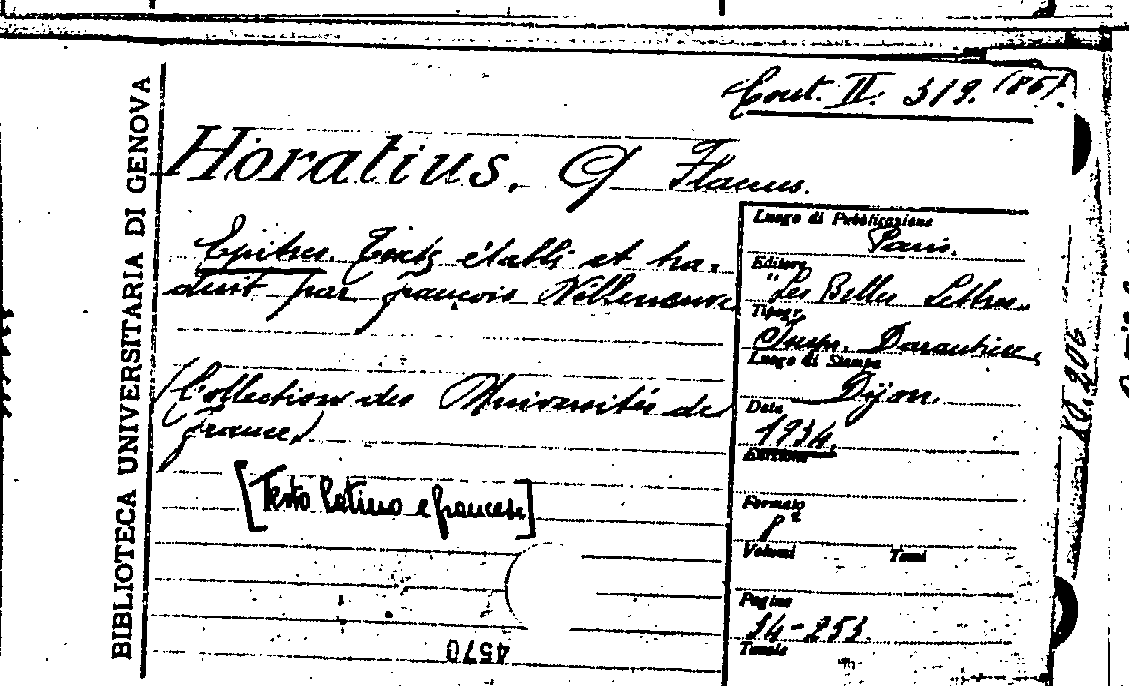 Cout. II. 319. (86).
BIBLIOTECA UNIVERSITARIA DI GENOVA
Horatius, Q Flaccus.
Epitres. Texte établi et tra-
duit par françois Villeneuve
(Collection des Universités de
france)
[Testo latino e francese]
4570
Luogo di Pubblicazione
Paris.
Editore
"Les Belles Lettres"
Tipogr.
Imp. Darantiere
Luogo di Stampa
Dijon.
Data
1934.
Edizione
Formato
8º
Volumi Tomi
Pagine
34-253.
Tavole